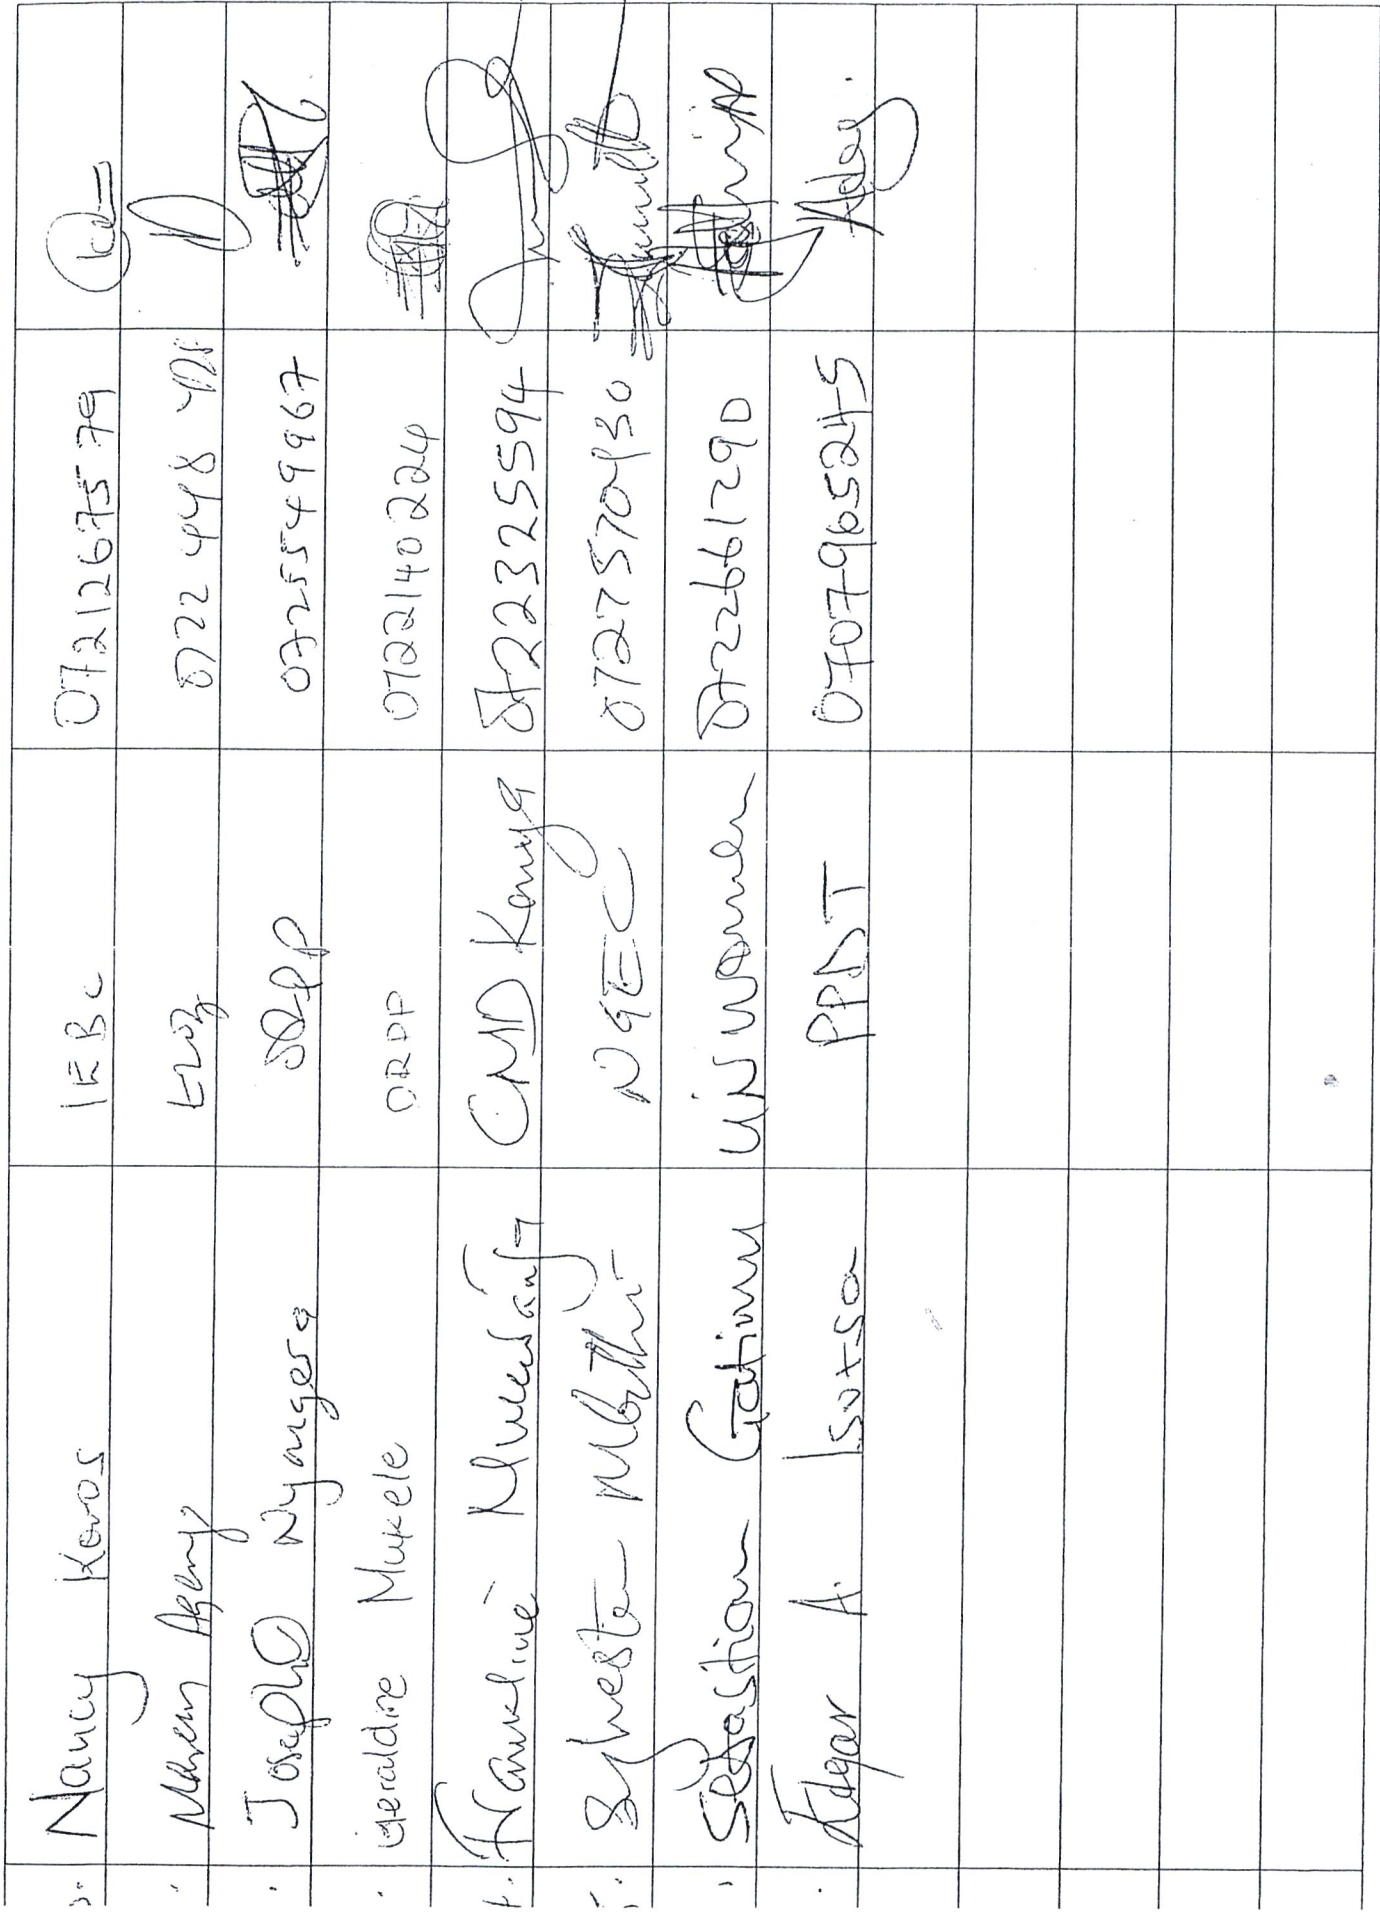 Nancy Koros IEBC 0721267579
Agenyo 0722 448
Joseph Nyangera ORPP 0725549967
Geraldine Mukele ORPP 0722140224
Frankline Mukwanja CMD Kenya 0722325594
Sylvester Mbithi NGEC
Sebastian Gatimu UN Women 0722661290
Edgar A. Isutsa PPDT 0707965245